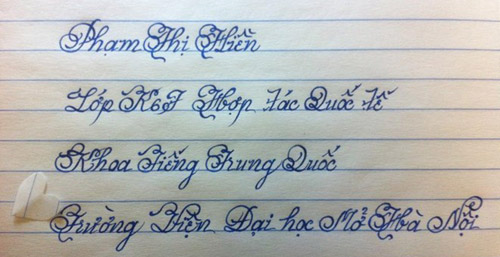 Phạm Thị Hiền
Lớp K6F Hợp tác Quốc tế
Khoa Tiếng Trung Quốc
Trường Viện Đại học Mở Hà Nội